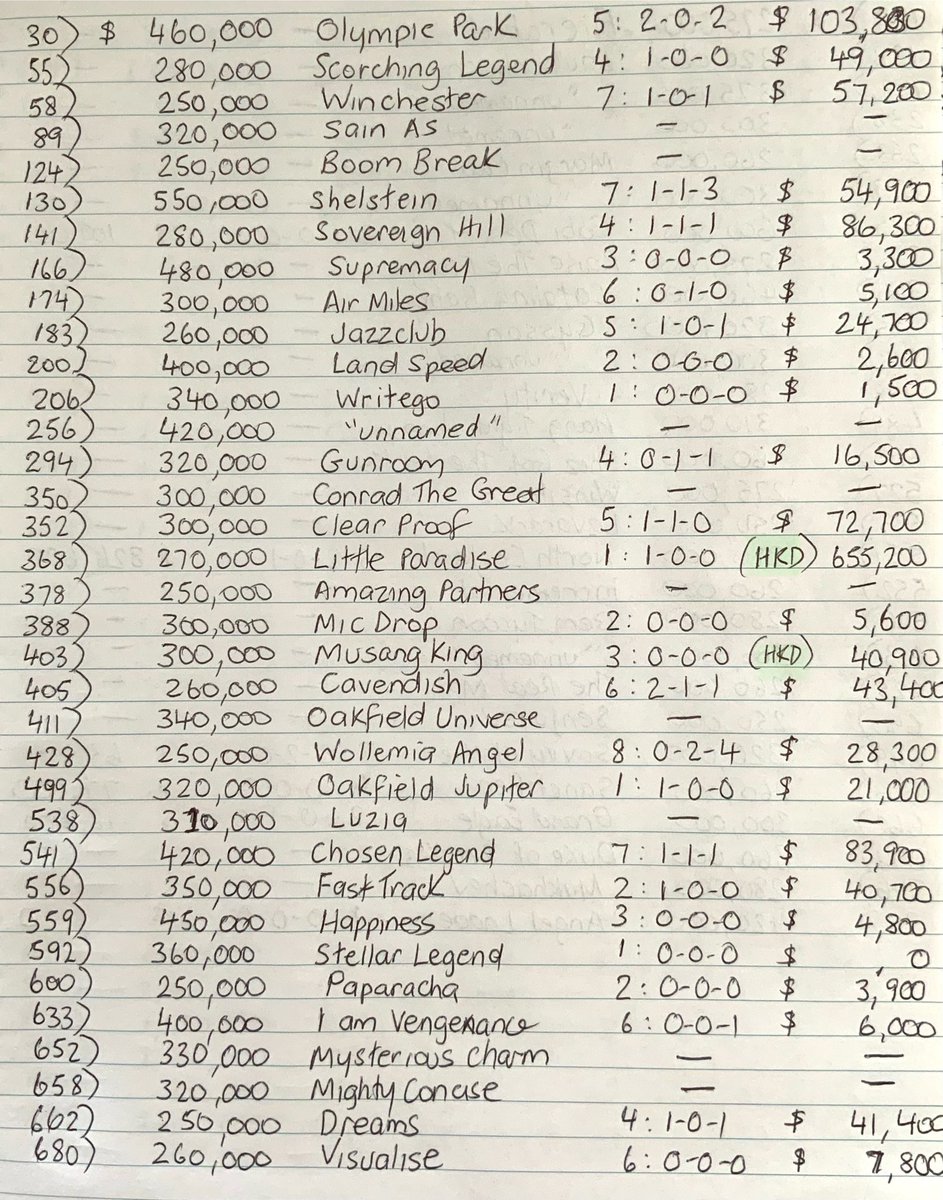 30) $ 460,000 Olympic Park 5: 2-0-2 $ 103,800
55) 280,000 Scorching Legend 4: 1-0-0 $ 49,000
58) 250,000 Winchester 7: 1-0-1 $ 57,200
89) 320,000 Sain As — —
124) 250,000 Boom Break — —
130) 550,000 Shelstein 7: 1-1-3 $ 54,900
141) 280,000 Sovereign Hill 4: 1-1-1 $ 86,300
166) 480,000 Supremacy 3: 0-0-0 $ 3,300
174) 300,000 Air Miles 6: 0-1-0 $ 5,100
183) 260,000 Jazzclub 5: 1-0-1 $ 24,700
200) 400,000 Land Speed 2: 0-0-0 $ 2,600
206) 340,000 Writego 1: 0-0-0 $ 1,500
256) 420,000 "unnamed" — —
294) 320,000 Gunroom 4: 0-1-1 $ 16,500
350) 300,000 Conrad The Great — —
352) 300,000 Clear Proof 5: 1-1-0 $ 72,700
368) 270,000 Little Paradise 1: 1-0-0 (HKD) 655,200
378) 250,000 Amazing Partners — —
388) 300,000 Mic Drop 2: 0-0-0 $ 5,600
403) 300,000 Musang King 3: 0-0-0 (HKD) 40,900
405) 260,000 Cavendish 6: 2-1-1 $ 43,400
411) 340,000 Oakfield Universe — —
428) 250,000 Wollemia Angel 8: 0-2-4 $ 28,300
499) 320,000 Oakfield Jupiter 1: 1-0-0 $ 21,000
538) 310,000 Luzia — —
541) 420,000 Chosen Legend 7: 1-1-1 $ 83,900
556) 350,000 Fast Track 2: 1-0-0 $ 40,700
559) 450,000 Happiness 3: 0-0-0 $ 4,800
592) 360,000 Stellar Legend 1: 0-0-0 $ 0
600) 250,000 Paparacha 2: 0-0-0 $ 3,900
633) 400,000 I am Vengenance 6: 0-0-1 $ 6,000
652) 330,000 Mysterious Charm — —
658) 320,000 Mighty Concise — —
662) 250,000 Dreams 4: 1-0-1 $ 41,400
680) 260,000 Visualise 6: 0-0-0 $ 7,800